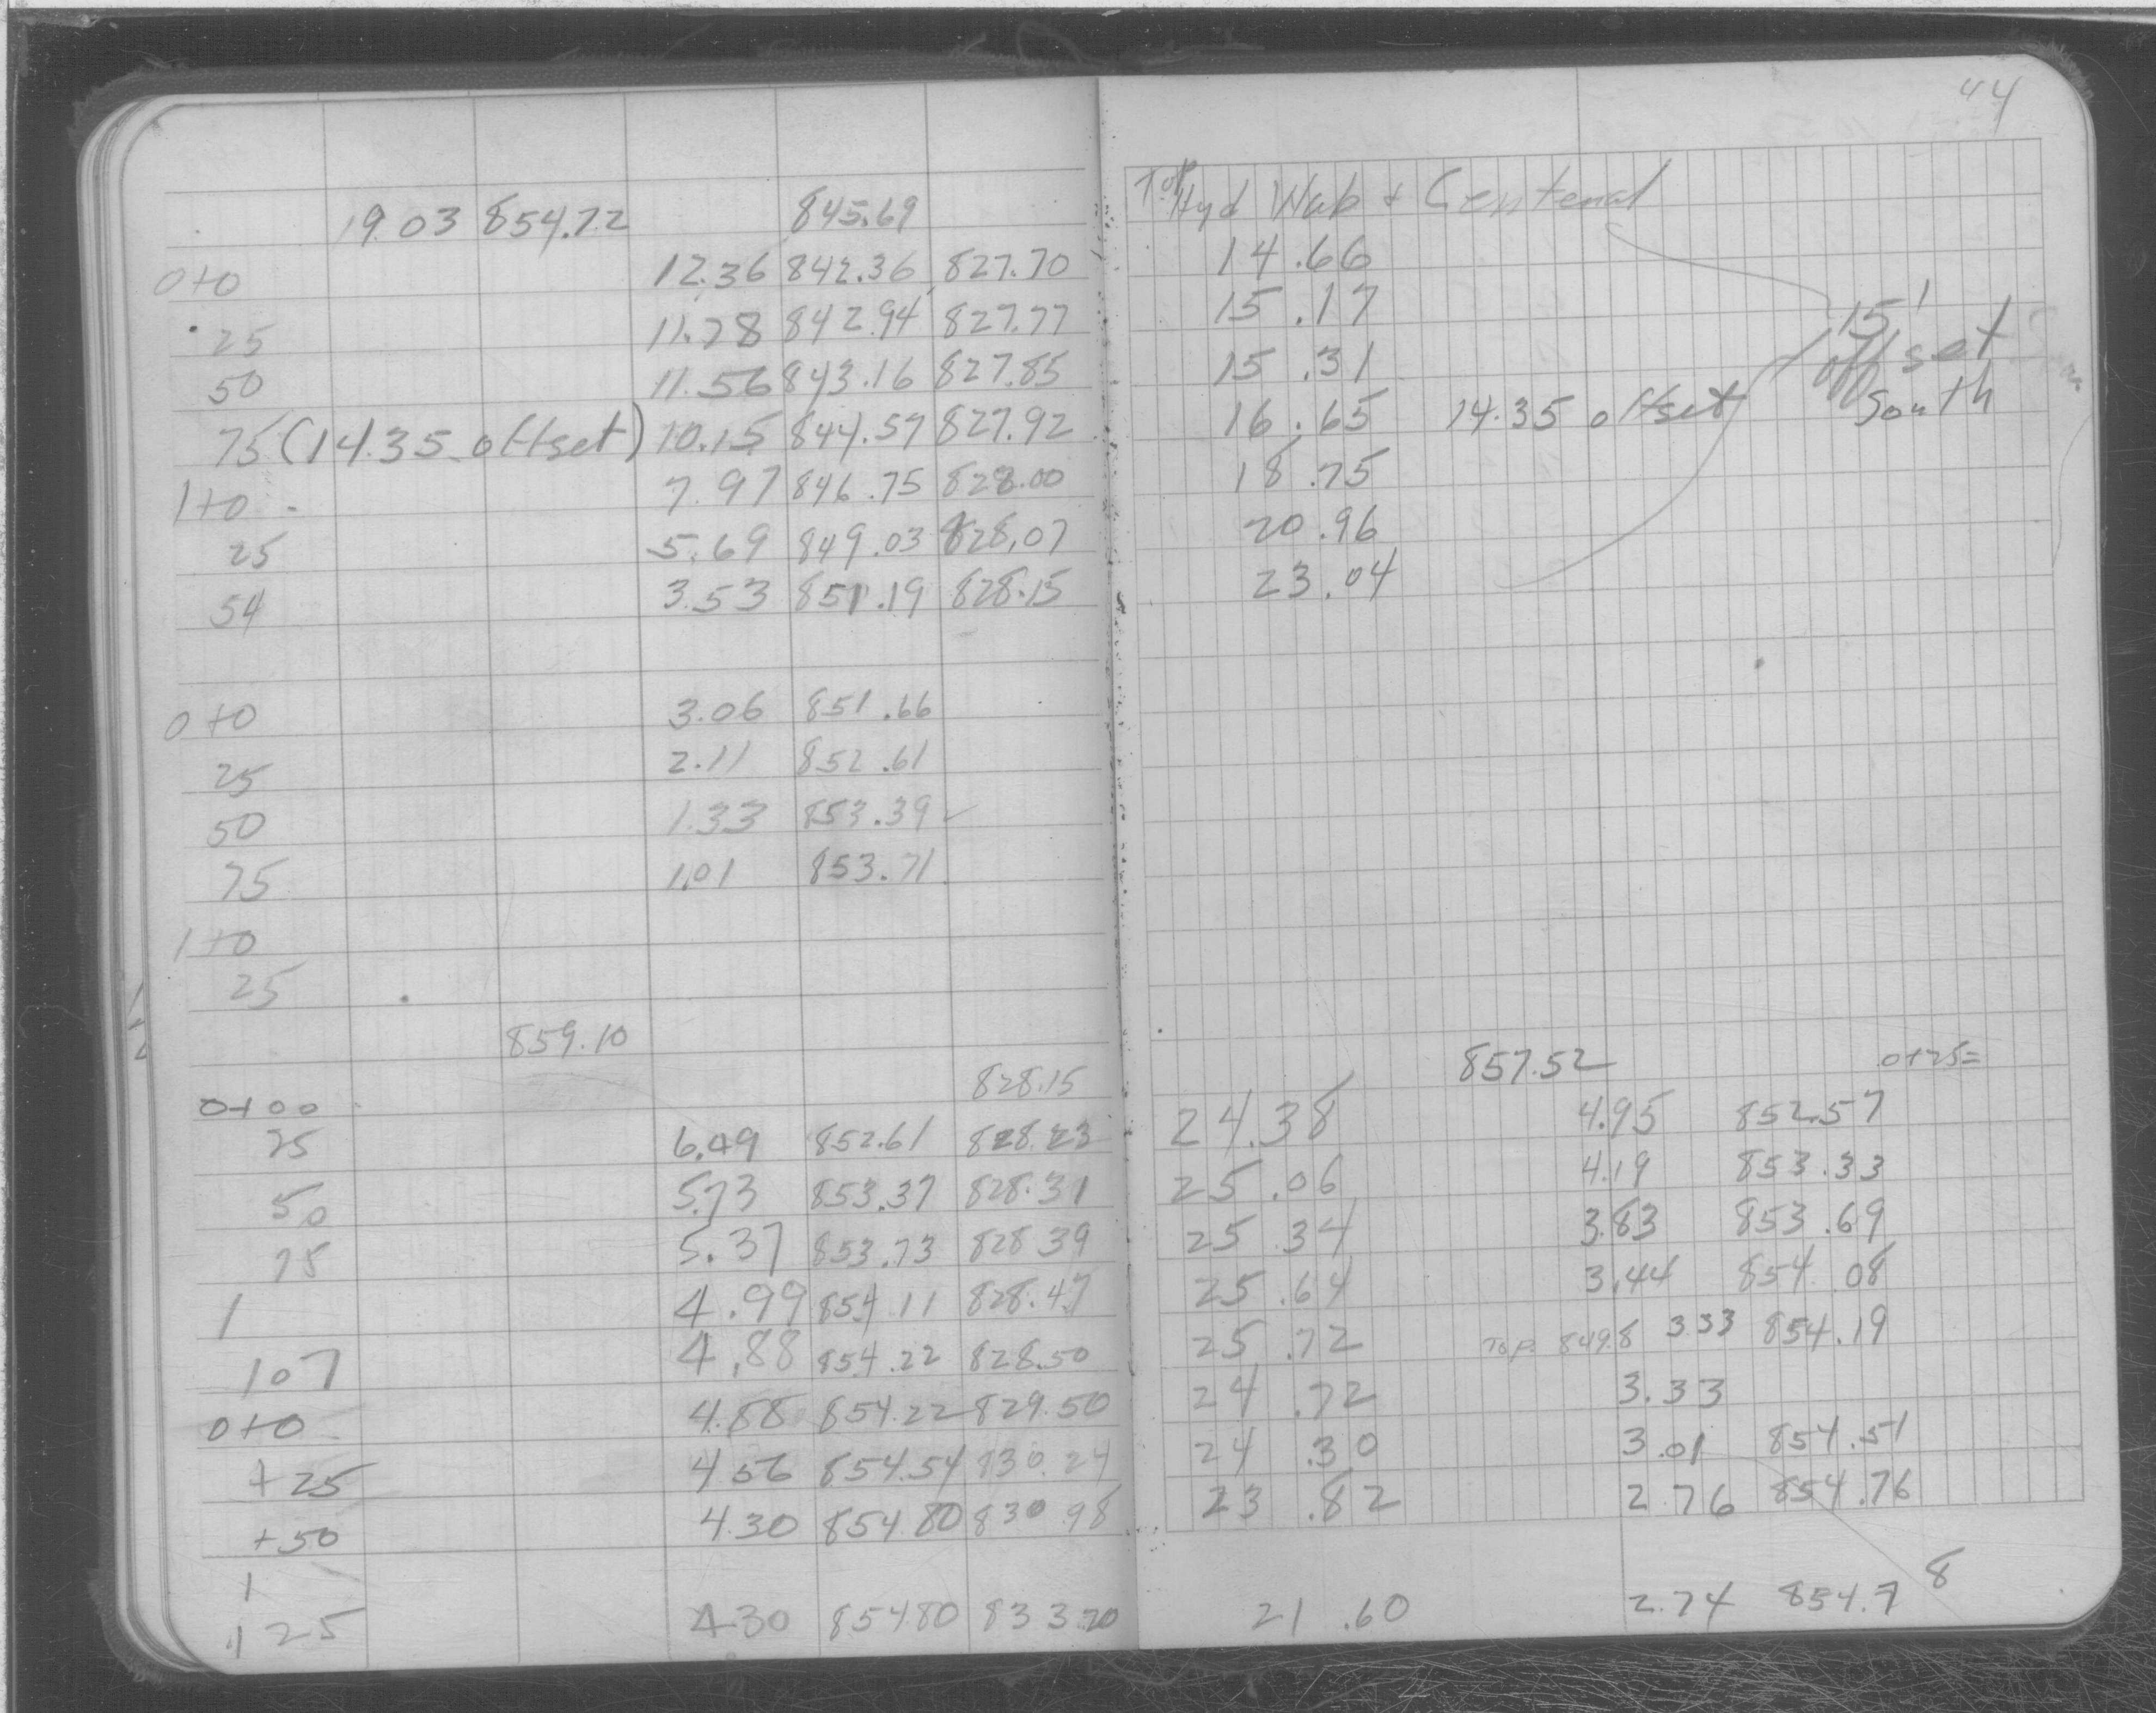 44
19.03 854.72 845.69 Top Hyd Wab + Centenal
0+0 12.36 842.36 827.70 14.66
25 11.78 842.94 827.77 15.17 15'
50 11.56 843.16 827.85 15.31 offset
75 (14.35 offset) 10.15 844.57 827.92 16.65 14.35 offset South
1+0 7.97 846.75 828.00 18.75
25 5.69 849.03 828.07 20.96
54 3.53 851.19 828.15 23.04
0+0 3.06 851.66
25 2.11 852.61
50 1.33 853.39 ✓
75 1.01 853.71
1+0
25
859.10 857.52 0+25=
0+00 828.15
25 6.49 852.61 828.23 24.38 4.95 852.57
50 5.73 853.37 828.31 25.06 4.19 853.33
75 5.37 853.73 828.39 25.34 3.83 853.69
1 4.99 854.11 828.47 25.64 3.44 854.08
107 4.88 854.22 828.50 25.72 Top 849.8 3.33 854.19
0+0 4.88 854.22 829.50 24.72 3.33
+25 4.56 854.54 830.24 24.30 3.01 854.51
+50 4.30 854.80 830.98 23.82 2.76 854.76
1
125 4.30 854.80 833.20 21.60 2.74 854.78